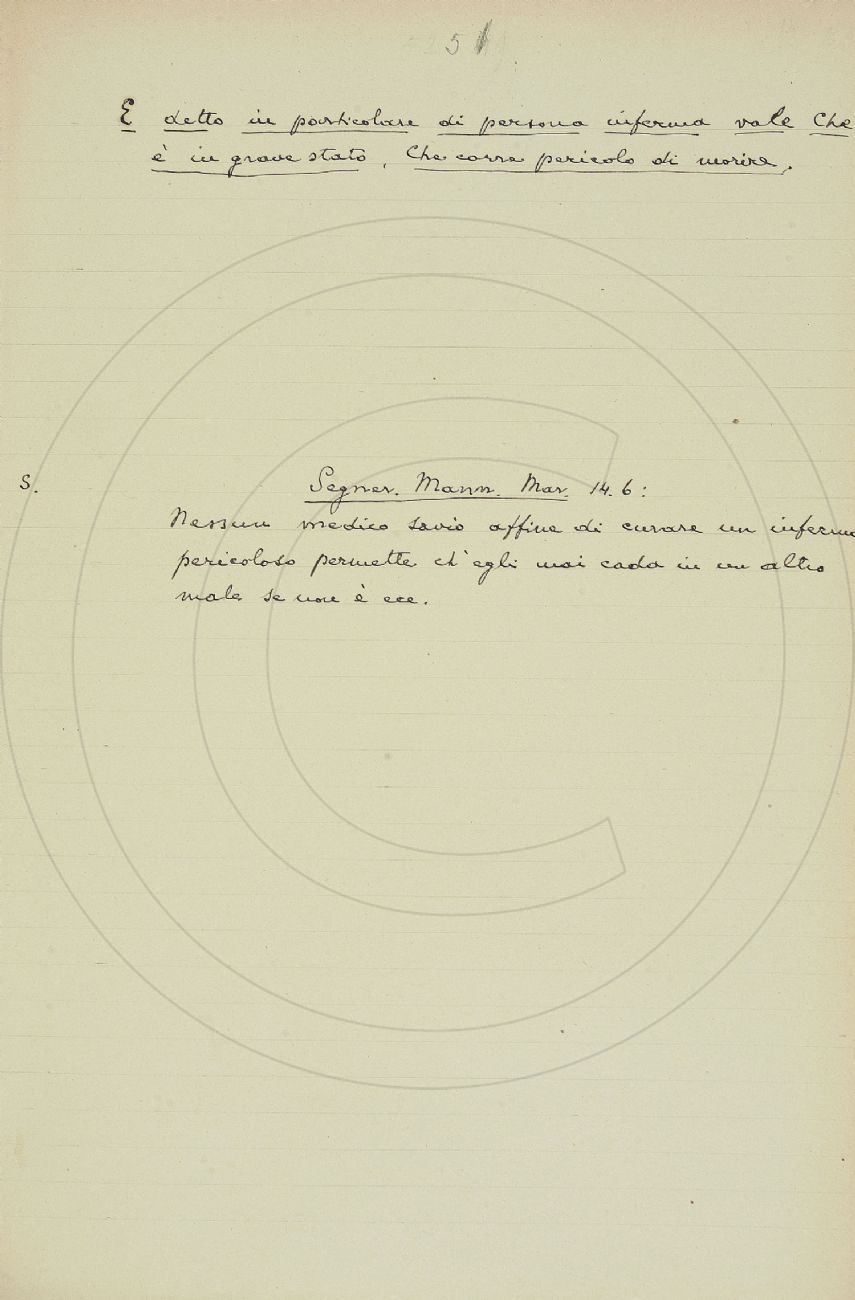 5
E detto in particolare di persona inferma vale Che
è in grave stato, Che corre pericolo di morire.
S. Segner. Mann. Mar. 14. 6:
Nessun medico savio affine di curare un infermo
pericoloso permette ch'egli mai cada in un altro
male se non è ecc.